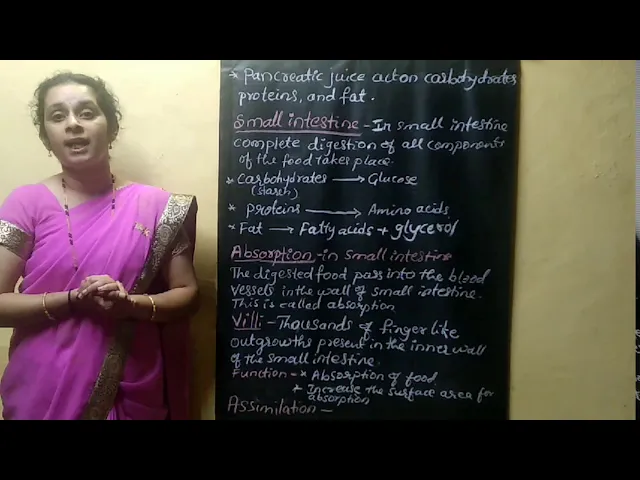 * Pancreatic juice act on carbohydrates
proteins, and fat.
Small intestine - In small intestine
complete digestion of all components
of the food takes place.
* Carbohydrates → Glucose
(starch)
* Proteins → Amino acids
* Fat → Fatty acids + glycerol
Absorption - in small intestine
The digested food pass into the blood
vessels in the wall of small intestine.
This is called absorption
Villi - Thousands of finger like
outgrowths present in the inner wall
of the small intestine.
Function - * Absorption of food.
* Increase the surface area for
absorption
Assimilation -